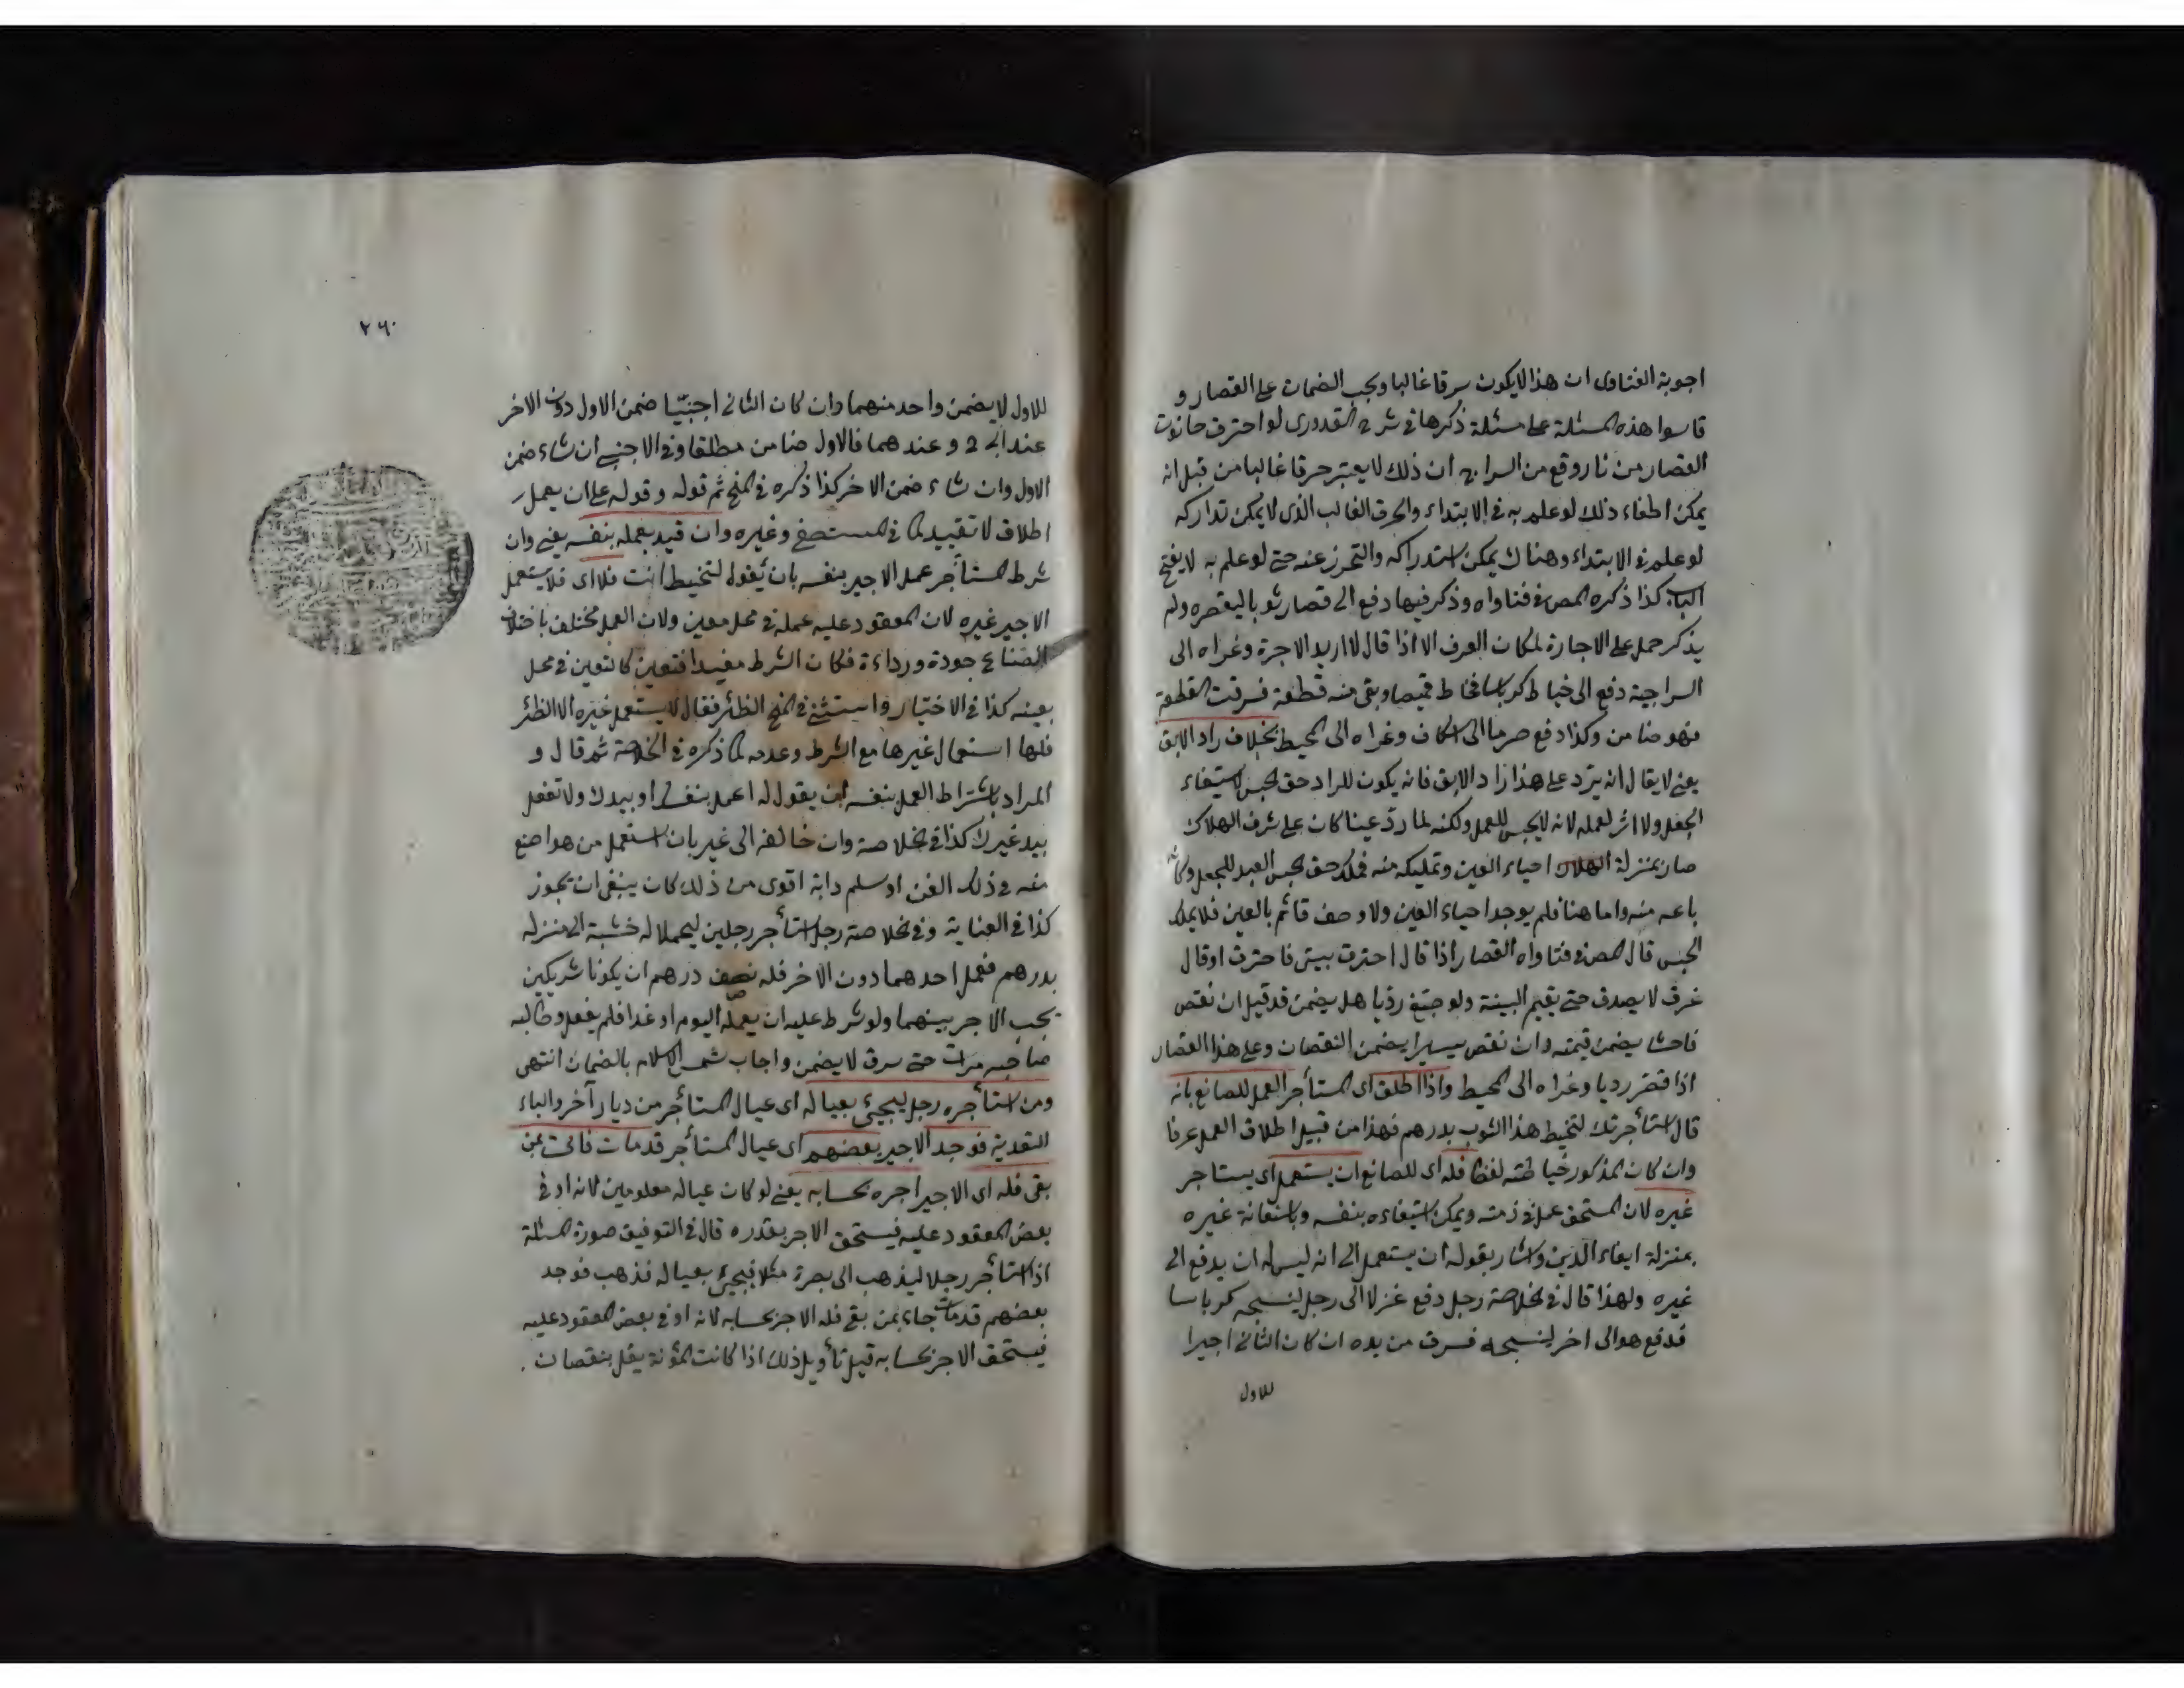 اجوبة الفتاوى ان هذا لا يكون سرقا غالبا ويجب الضمان على القصار و
قاسوا هذه المسئلة على مسئلة ذكرها في شرح القدورى لو احترق حانوت
القصار من نار وقع من السراج ان ذلك لا يعتبر حرقا غالبا من قبل انه
يمكن اطفاء ذلك لو علم به في الابتداء والحرق الغالب الذى لا يمكن تداركه
لو علم في الابتداء وهناك يمكن استدراكه والتحرز عنه حتى لو علم به لا يفتح
الباب كذا ذكره المص في فتاواه وذكر فيها دفع الى قصار ثوبا ليقصره ولم
يذكر حمل على الاجارة لمكان العرف الا اذا قال لا اريد الاجرة وعزاه الى
السراجية دفع الى خياط كرباسا فخاط قميصا وبقى منه قطعة فسرقت القطعة
فهو ضامن وكذا دفع صرما الى اسكاف وعزاه الى المحيط بخلاف راد الابق
يعنى لا يقال انه يرد على هذا راد الابق فانه يكون للراد حق حبس لاستيفاء
الجعل ولا اثر لعمله لانه لا يحبس للعمل ولكنه لما ردّ عينا كان على شرف الهلاك
صار بمنزلة الهلاك احياء العين وتمليكه منه فملك حق حبس العبد للجعل وكانه
باعه منه واما هنا فلم يوجد احياء العين ولا وصف قائم بالعين فلا يملك
الحبس قال المص في فتاواه القصار اذا قال احترق بيتى فاحترق او قال
غرق لا يصدق حتى يقيم البينة ولو صبغ رديا هل يضمن قد قيل ان نقص
فاحشا يضمن قيمته وان نقص يسيرا يضمن النقصان وعلى هذا القصار
اذا قصر رديا وعزاه الى المحيط واذا اطلق اى المستأجر العمل للصانع بانه
قال استأجرتك لتخيط هذا الثوب بدرهم فهذا من قبيل اطلاق العمل عرفا
وان كان المذكور خياطته لفظا فله اى للصانع ان يستعمل اى يستاجر
غيره لان المستحق عمل في ذمته ويمكن استيفاءه بنفسه وباستعانة غيره
بمنزلة ايفاء الدين واشار بقوله ان يستعمل الى انه ليس له ان يدفع الى
غيره ولهذا قال في الخلاصة رجل دفع غزلا الى رجل لينسجه كرباسا
فدفع هو الى اخر لينسجه فسرق من يده ان كان الثانى اجيرا
للاول
٢٦٠
للاول لا يضمن واحد منهما وان كان الثانى اجنبيّا ضمن الاول دون الاخر
عند ابى ح وعندهما فالاول ضامن مطلقا وفى الاجنبى ان شاء ضمن
الاول وان شاء ضمن الاخر كذا ذكره في المنح ثم قوله وقوله على ان يعمل
اطلاق لا تقييد كما في المستصفى وغيره وان قيد بعمله بنفسه يعنى وان
شرط المستأجر عمل الاجير بنفسه بان يقول لتخيط انت فلا اى فلا يستعمل
الاجير غيره لان المعقود عليه عمله في محل معين ولان العمل مختلف باختلاف
الصناع جودة ورداءة فكان الشرط مفيدا فتعين كالتعين في محل
بعينه كذا في الاختيار واستثنى في المنح الظئر فقال لا يستعمل غيره الا الظئر
فلها استعمال غيرها مع الشرط وعدمه كما ذكره في الخلاصة ثم قال و
المراد باشتراط العمل بنفسه ان يقول له اعمل بنفسك او بيدك ولا تفعل
بيد غيرك كذا في الخلاصة وان خالفه الى غير بان استعمل من هو اصنع
منه في ذلك الفن او سلم دابة اقوى من ذلك كان ينبغى ان يجوز
كذا في العناية وفي الخلاصة رجل استأجر رجلين ليحملا له خشبة الى منزله
بدرهم فحمل احدهما دون الاخر فله نصف درهم ان يكونا شريكين
يجب الاجر بينهما ولو شرط عليه ان يعمله اليوم او غدا فلم يفعل وطالبه
صاحبه مرات حتى سرق لا يضمن واجاب شمس الاسلام بالضمان انتهى
ومن استأجره رجل ليجيئ بعياله اى عيال المستأجر من ديار آخر والباء
للتعدية فوجد الاجير بعضهم اى عيال المستأجر قد مات فاتى بمن
بقى فله اى الاجير اجره بحسابه يعنى لو كان عياله معلومين لانه اوفى
بعض المعقود عليه فيستحق الاجر بقدره قال في التوفيق صورة المسئلة
اذا استأجر رجلا ليذهب الى بصرة مثلا فيجيئ بعياله فذهب فوجد
بعضهم قد مات جاء بمن بقى فله الاجر بحسابه لانه اوفى بعض المعقود عليه
فيستحق الاجر بحسابه قيل تأويل ذلك اذا كانت المؤنة يقل بنقصان